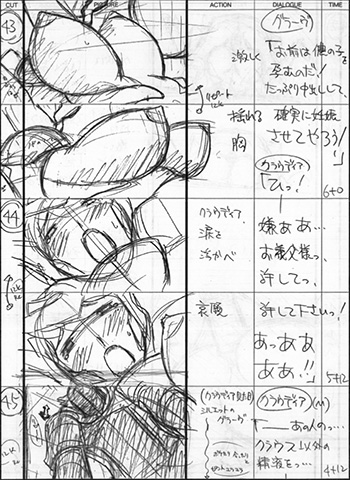 CUT
PICTURE
ACTION
DIALOGUE
TIME
43
激しく
リピート
揺れる
胸
グラーヴ
「お前は僕の子を
孕むのだ!
たっぷり中出しして、
確実に妊娠
させてやろう!」
クラウディア
「ひっ!
6+0
44
クラウディア
涙を
浮かべ
嫌ああ…
お義父様っ、
許してっ、
哀願
許して下さい!
あっああ
ああ!!」
5+12
45
シルエットの
グラーヴ
クラウディア(M)
「――あの人のっ…
クラウス以外の
精液をっ…
4+12